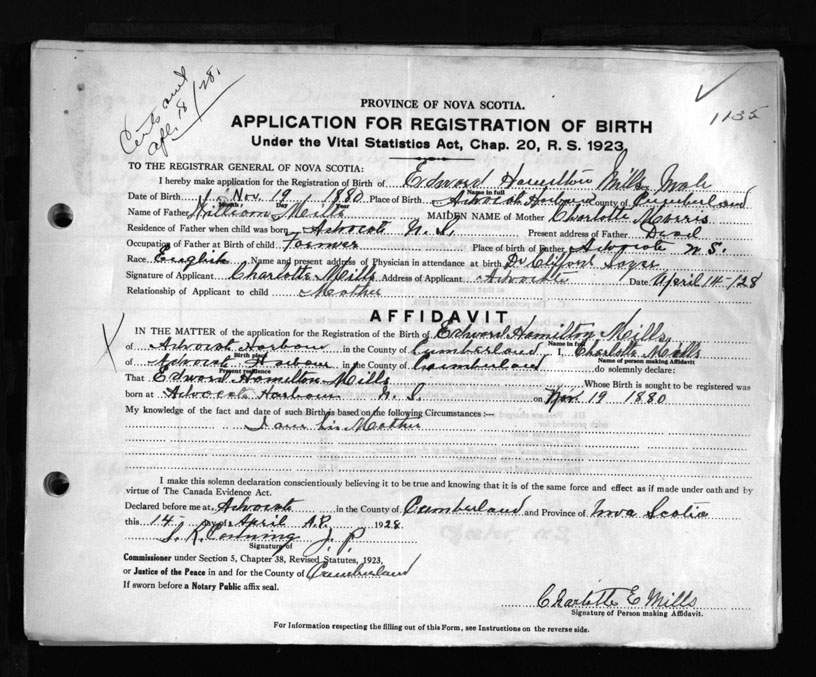 Certs sent
Apl. 18/28.
1135
PROVINCE OF NOVA SCOTIA.
APPLICATION FOR REGISTRATION OF BIRTH
Under the Vital Statistics Act, Chap. 20, R. S. 1923,
TO THE REGISTRAR GENERAL OF NOVA SCOTIA:
I hereby make application for the Registration of Birth of Edward Hamilton Mills Male
Name in full
Date of Birth Nov. 19 1880 Place of Birth Advocate Harbour County of Cumberland
Month Day Year
Name of Father William Mills MAIDEN NAME of Mother Charlotte Morris
Residence of Father when child was born Advocate N.S. Present address of Father Dead
Occupation of Father at Birth of child Farmer Place of birth of Father Advocate N.S.
Race English Name and present address of Physician in attendance at birth Dr Clifford
Signature of Applicant Charlotte Mills Address of Applicant Advocate Date April 14-/28
Relationship of Applicant to child Mother
AFFIDAVIT
IN THE MATTER of the application for the Registration of the Birth of Edward Hamilton Mills
Name in full
of Advocate Harbour in the County of Cumberland I, Charlotte Mills
Birth place Name of person making Affidavit
of Advocate Harbour in the County of Cumberland do solemnly declare:
Present residence
That Edward Hamilton Mills Whose Birth is sought to be registered was
born at Advocate Harbour N.S. on Nov. 19 1880
My knowledge of the fact and date of such Birth is based on the following Circumstances:—
I am his Mother
I make this solemn declaration conscientiously believing it to be true and knowing that it is of the same force and effect as if made under oath and by
virtue of The Canada Evidence Act.
Declared before me at Advocate in the County of Cumberland and Province of Nova Scotia
this 14 day of April A.D. 1928
J. P.
Signature of
Commissioner under Section 5, Chapter 38, Revised Statutes, 1923,
or Justice of the Peace in and for the County of Cumberland
If sworn before a Notary Public affix seal.
Charlotte E Mills
Signature of Person making Affidavit.
For Information respecting the filling out of this Form, see Instructions on the reverse side.